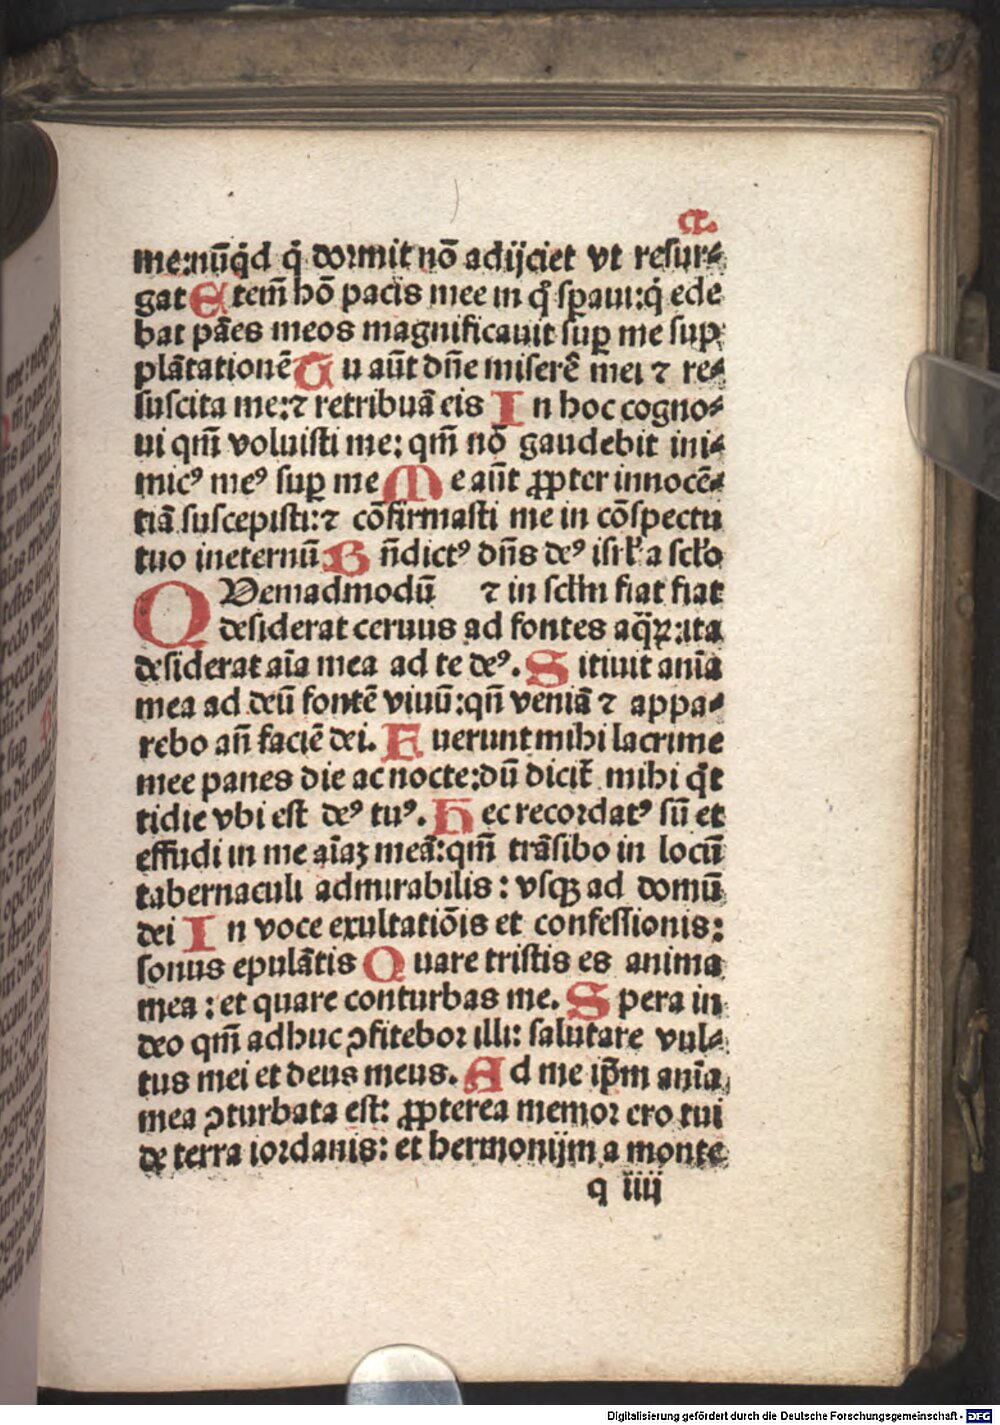 C.
me:nūq̇d q̇ dormit nō adijciet vt resur⸗
gat Etem̄ hō pacis mee in q̊ sꝑaui:q̇ ede
bat pāes meos magnificauit suꝑ me sup
plātationē Tu aūt dn̄e miserē mei ⁊ re⸗
suscita me:⁊ retribuā eis In hoc cogno⸗
ui qm̄ voluisti me: qm̄ nō gaudebit ini⸗
micꝰ meꝰ suꝑ me Me aūt ꝓpter innocē⸗
tiā suscepisti:⁊ cōfirmasti me in cōspectu
tuo ineternū Bn̄dictꝰ dn̄s deꝰ isrł a scło
QVemadmodū ⁊ in scłm fiat fiat
desiderat ceruus ad fontes aq̄ꝝ:ita
desiderat aīa mea ad te deꝰ. Sitiuit anīa
mea ad deū fontē viuū:qn̄ veniā ⁊ appa⸗
rebo an̄ faciē dei. Fuerunt mihi lacrime
mee panes die ac nocte:dū dicit᷑ mihi q̊t
tidie vbi est deꝰ tuꝰ. Hec recordatꝰ sū et
effudi in me aīaꝫ meā:qm̄ trāsibo in locū
tabernaculi admirabilis: vsqꝫ ad domū
dei In voce exultatiōis et confessionis:
sonus epulātis Quare tristis es anima
mea: et quare conturbas me. Spera in
deo qm̄ adhuc ꝯfitebor illi: salutare vul⸗
tus mei et deus meus. Ad me ip̄m anīa
mea ꝯturbata est: ꝓpterea memor ero tui
de terra iordanis: et hermonijm a monte
q iiij
Digitalisierung gefördert durch die Deutsche Forschungsgemeinschaft - DFG